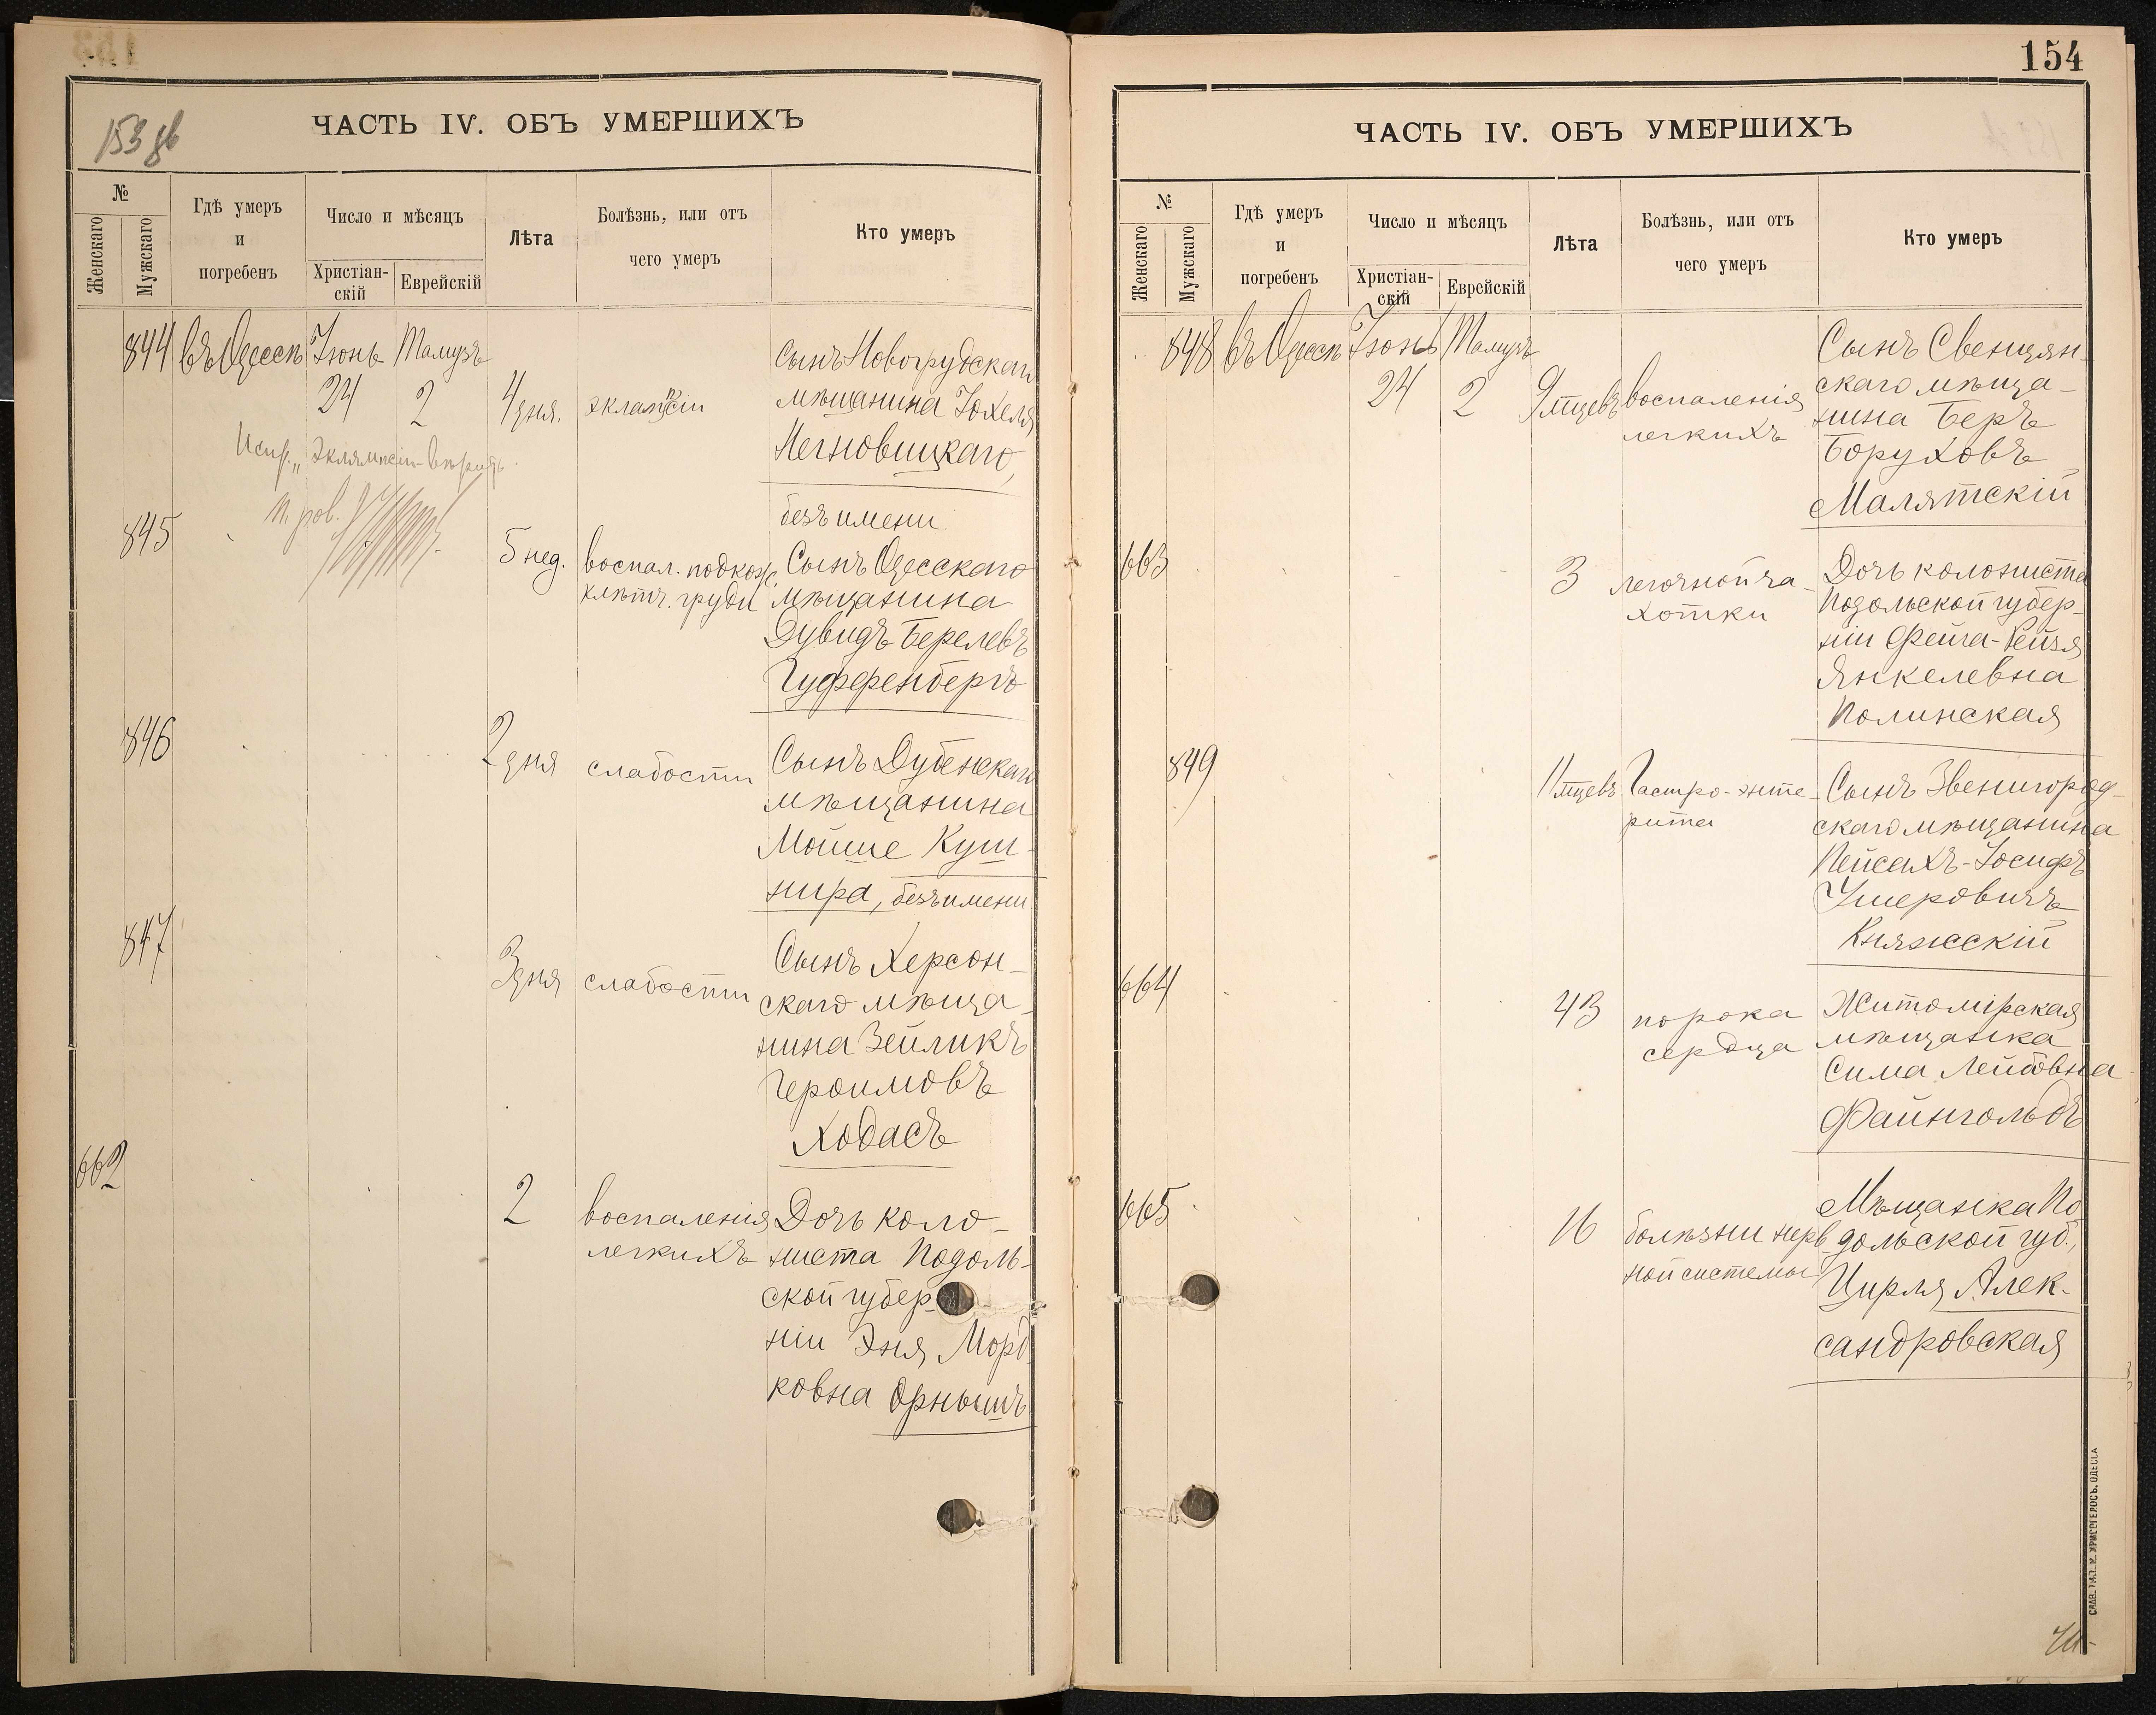 153 об
ЧАСТЬ IV. ОБЪ УМЕРШИХЪ
№
Женскаго
Мужскаго
Гдѣ умеръ
и
погребенъ
Число и мѣсяцъ
Христіан-
скій
Еврейскій
Лѣта
Болѣзнь, или отъ
чего умеръ
Кто умеръ
844 въ Одессѣ Іюнь Тамузъ
24 2 4 дня. эклампсіи
Сынъ Новогрудскаго
мѣщанина Іохеля
Негновицкаго,
безъ имени.
Испр. „эклямпсіи - вѣрить.
845 5 нед. воспал. подкож.
клѣтч. груди
Сынъ Одесскаго
мѣщанина
Дувидъ Берелевъ
Гуфференбергъ
846 2 дня слабости
Сынъ Дубенскаго
мѣщанина
Мойше Куш-
нира, безъ имени
847 3 дня слабости
Сынъ Херсон-
скаго мѣща-
нина Зейликъ
Героимовъ
Ходасъ
662 2 воспаленія
легкихъ
Дочь коло-
ниста Подоль-
ской губер-
ніи Эня Морд-
ковна Орнышъ
154
ЧАСТЬ IV. ОБЪ УМЕРШИХЪ
№
Женскаго
Мужскаго
Гдѣ умеръ
и
погребенъ
Число и мѣсяцъ
Христіан-
скій
Еврейскій
Лѣта
Болѣзнь, или отъ
чего умеръ
Кто умеръ
848 въ Одессѣ Іюнь Тамузъ
24 2 9 мцевъ воспаленія
легкихъ
Сынъ Свенцян-
скаго мѣща-
нина Беръ
Боруховъ
Малятскій
663 3 легочной ча-
хотки
Дочь колониста
Подольской губер-
ніи Фейга-Рейзя
Янкелевна
Полинская
849 11 мцевъ Гастро-энте-
рита
Сынъ Звенигород-
скаго мѣщанина
Пейсахъ-Іосифъ
Ушеровичъ
Княжескій
664 43 порока
сердца
Житомірская
мѣщанка
Сима Лейбовна
Файнгольдъ
665 16 болѣзни нерв-
ной системы
Мѣщанка По-
дольской губ.,
Цирля Алек-
сандровская
СЛАВ. ТИП. Н. ХРИСОГЕЛОСЪ. ОДЕССА